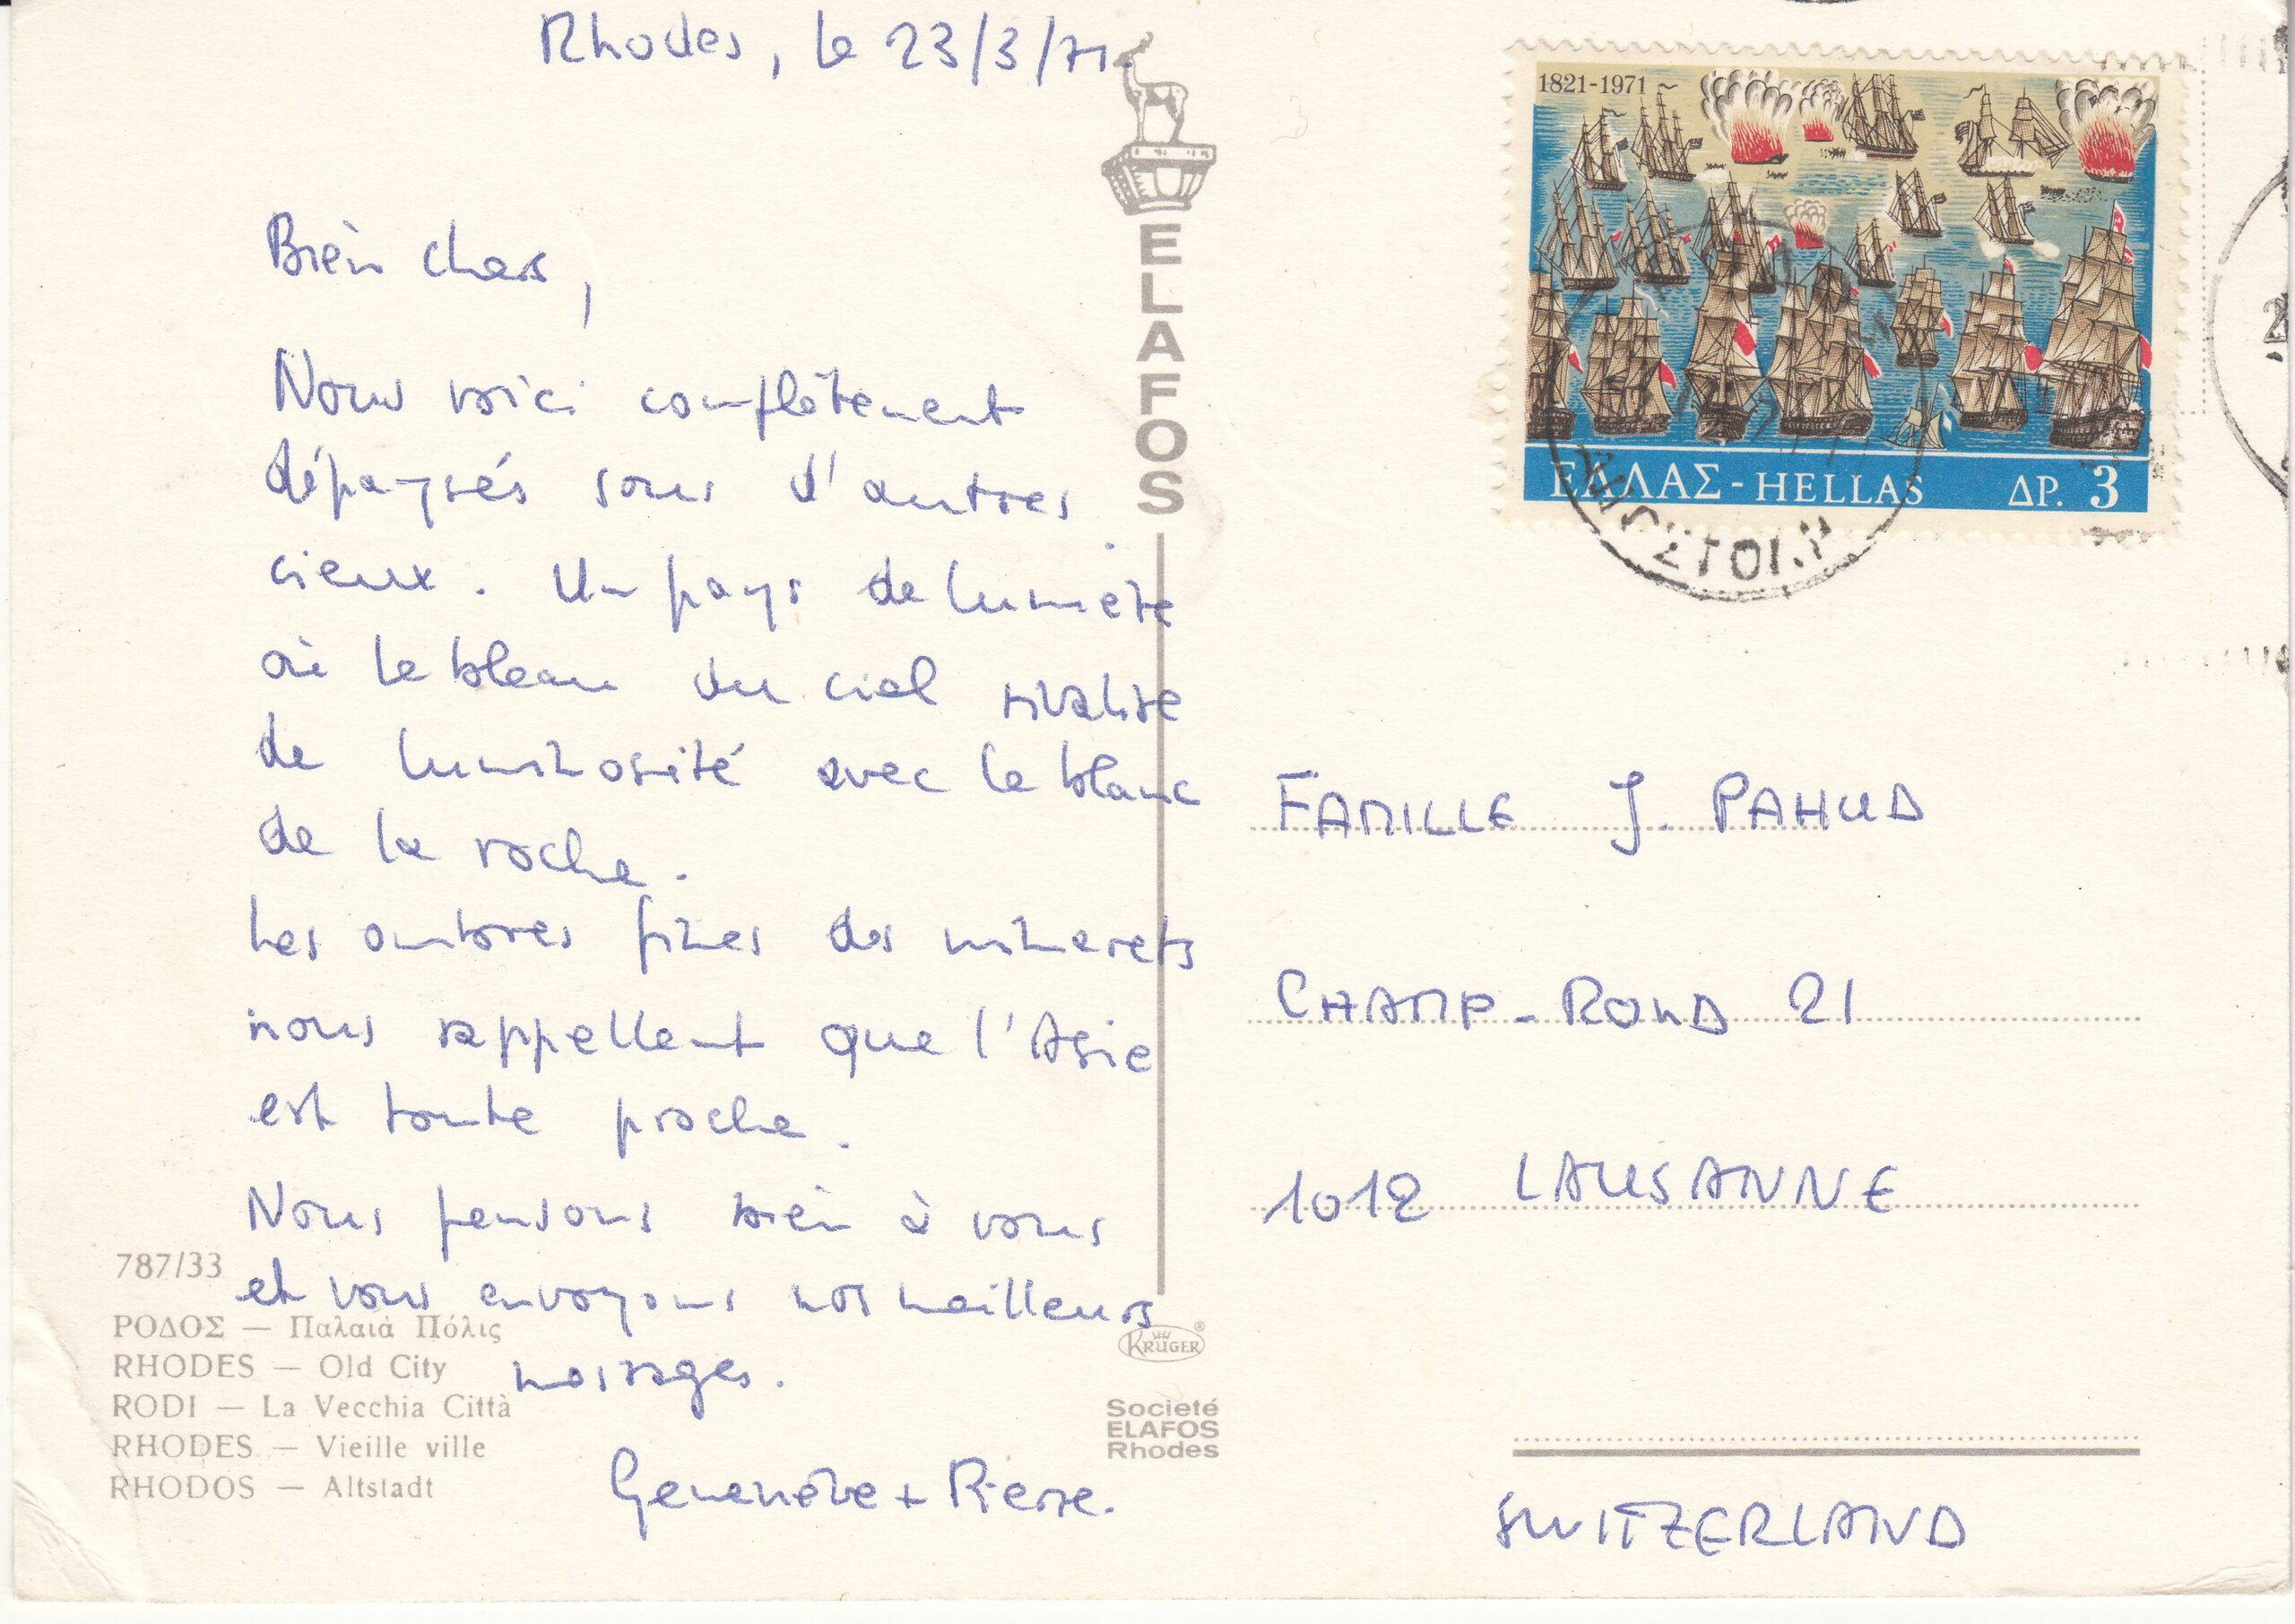 Rhodes, le 23/3/71.
Bien chers,
Nous voici complètement
dépaysés sous d'autres
cieux. Un pays de lumière
où le bleau du ciel rivalise
de luminosité avec le blanc
de la roche.
Les ombres fines des minarets
nous rappellent que l'Asie
est toute proche.
Nous pensons bien à vous
et vous envoyons nos meilleurs
messages.
Geneviève + Pierre.
787/33
ΡΟΔΟΣ — Παλαιὰ Πόλις
RHODES — Old City
RODI — La Vecchia Città
RHODES — Vieille ville
RHODOS — Altstadt
ELAFOS
KRÜGER ®
Societé
ELAFOS
Rhodes
1821-1971
ΕΛΛΑΣ - HELLAS ΔΡ. 3
FAMILLE J. PAHUD
CHAMP-ROND 21
1012 LAUSANNE
SWITZERLAND